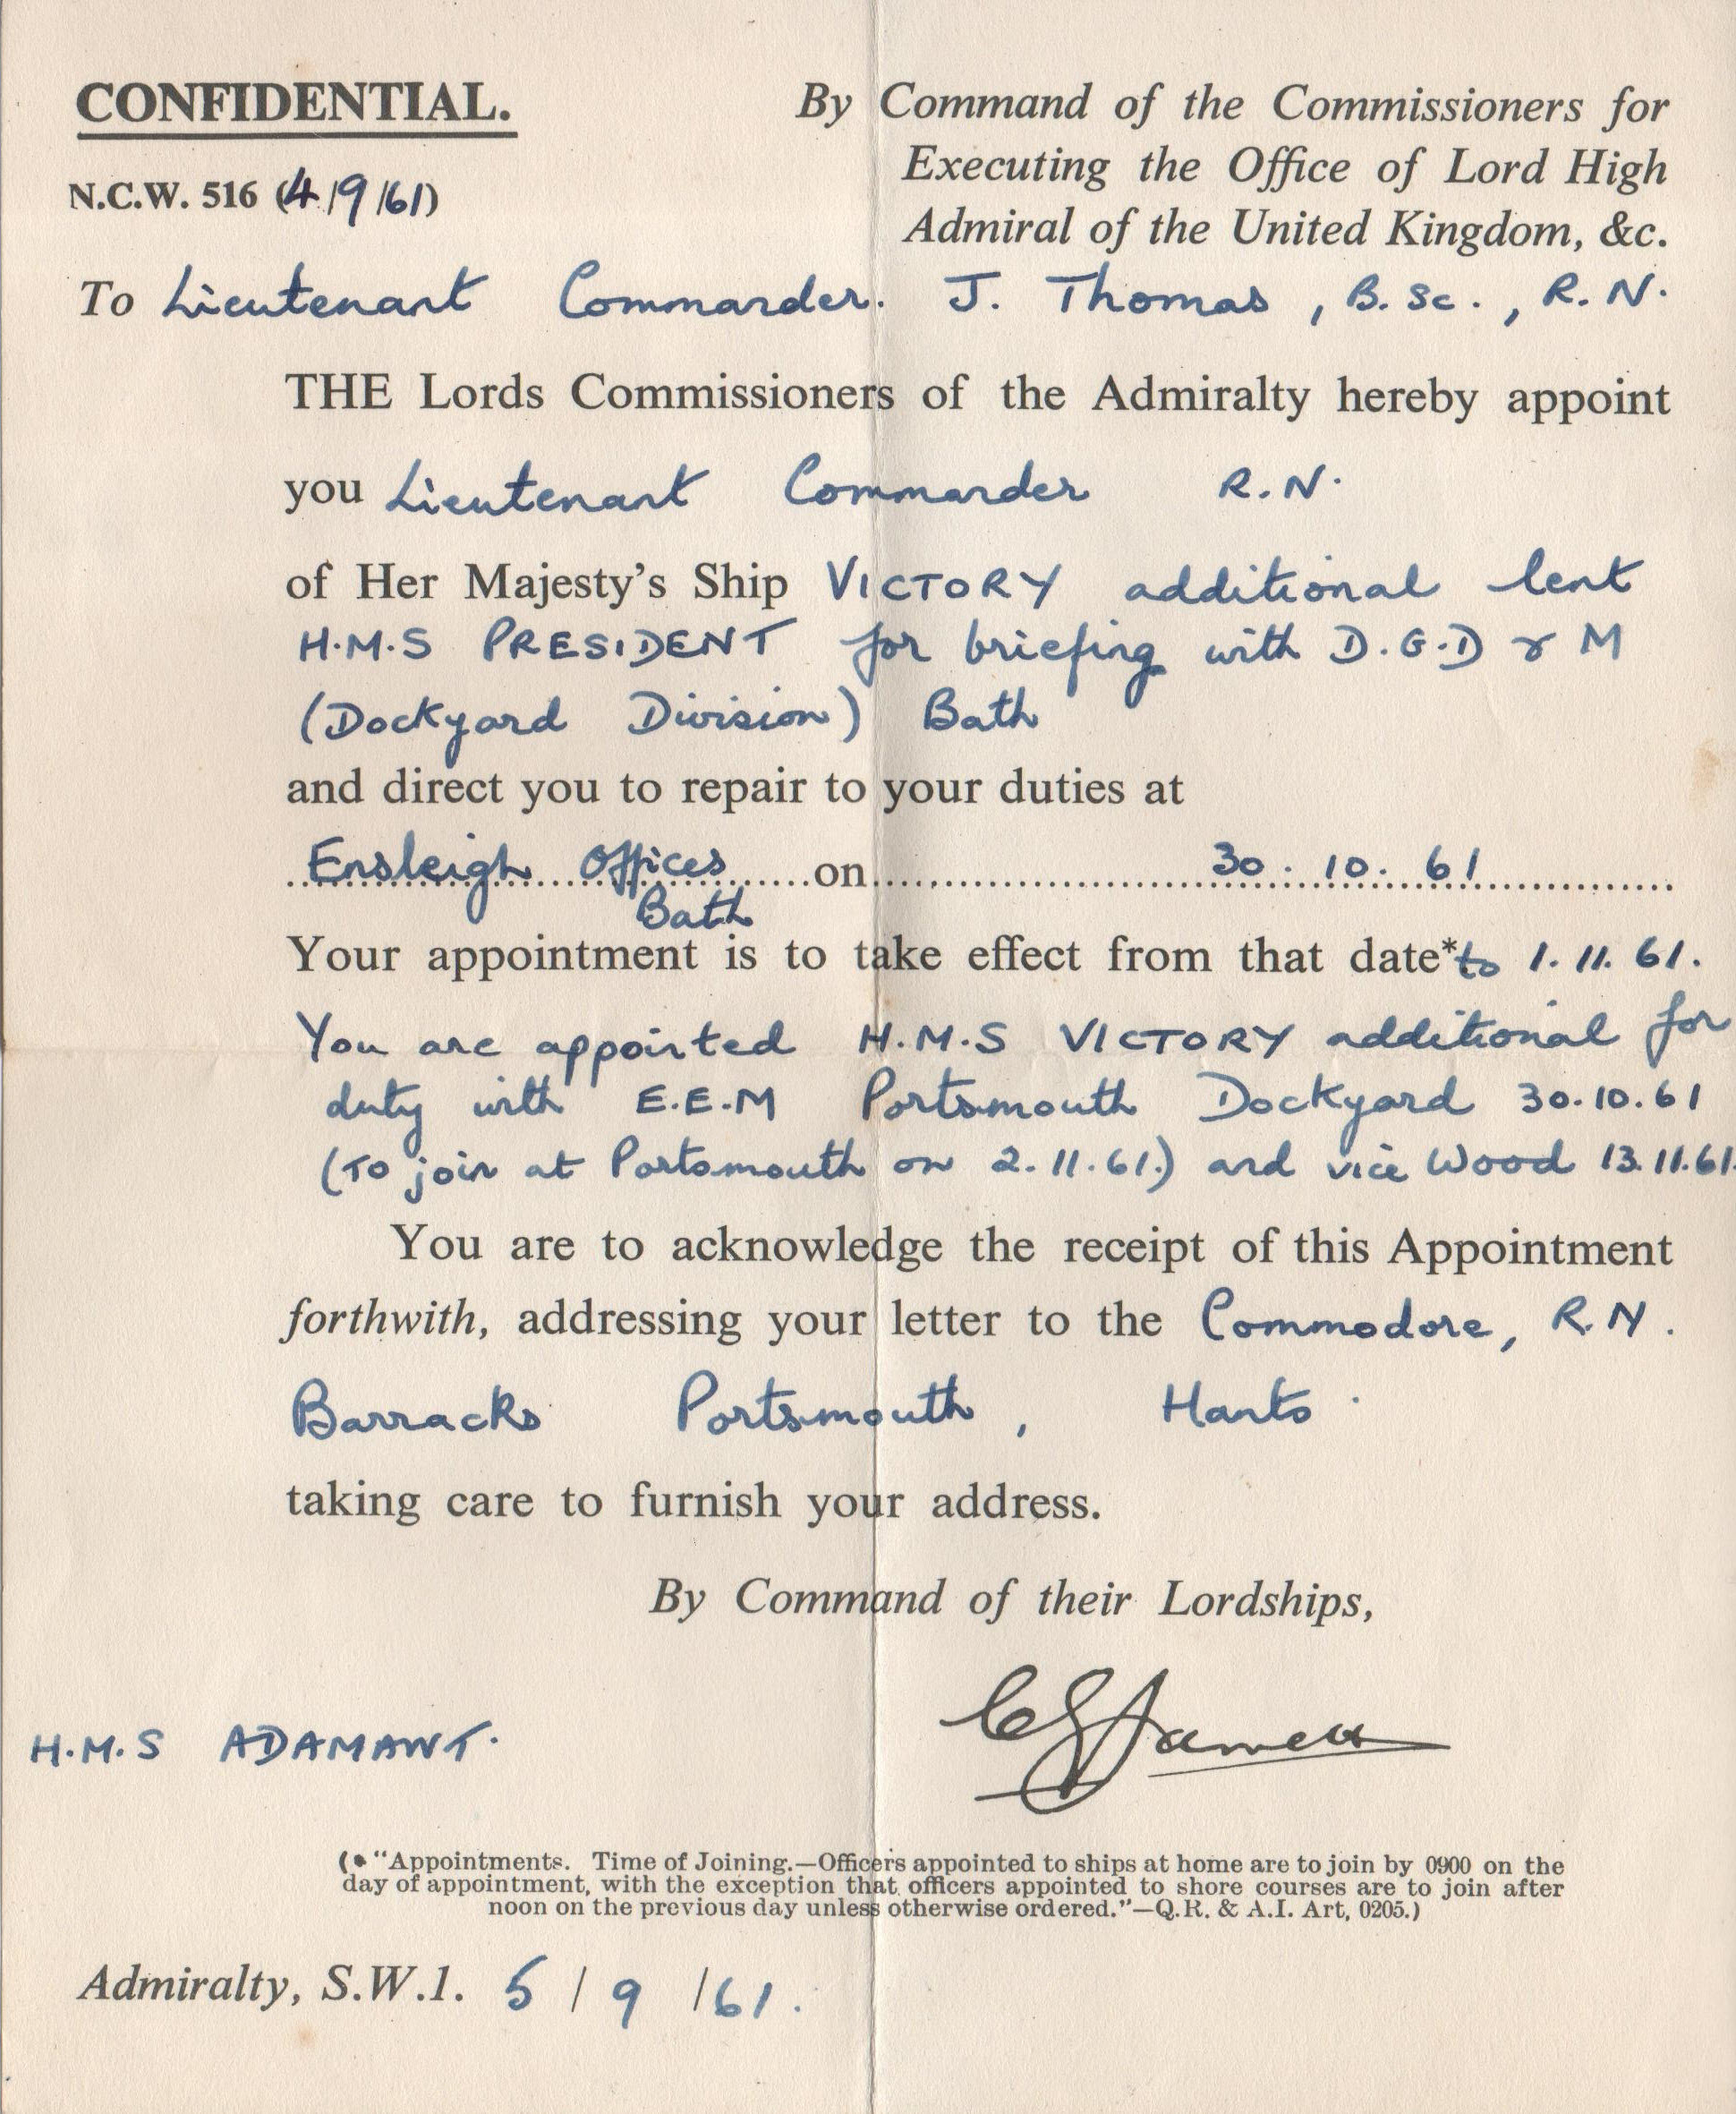 CONFIDENTIAL.
By Command of the Commissioners for
Executing the Office of Lord High
Admiral of the United Kingdom, &c.
N.C.W. 516 (4/9/61)
To Lieutenant Commander. J. Thomas, B.Sc., R.N.
THE Lords Commissioners of the Admiralty hereby appoint
you Lieutenant Commander R.N.
of Her Majesty's Ship VICTORY additional lent
H.M.S PRESIDENT for briefing with D.G.D & M
(Dockyard Division) Bath
and direct you to repair to your duties at
Ensleigh Offices on 30.10.61
Bath
Your appointment is to take effect from that date* to 1.11.61.
You are appointed H.M.S VICTORY additional for
duty with E.E.M Portsmouth Dockyard 30.10.61
(To join at Portsmouth on 2.11.61.) and vice Wood 13.11.61.
You are to acknowledge the receipt of this Appointment
forthwith, addressing your letter to the Commodore, R.N.
Barracks Portsmouth, Hants.
taking care to furnish your address.
By Command of their Lordships,
H.M.S ADAMANT.
(* "Appointments. Time of Joining.—Officers appointed to ships at home are to join by 0900 on the
day of appointment, with the exception that officers appointed to shore courses are to join after
noon on the previous day unless otherwise ordered."—Q.R. & A.I. Art, 0205.)
Admiralty, S.W.1. 5/9/61.